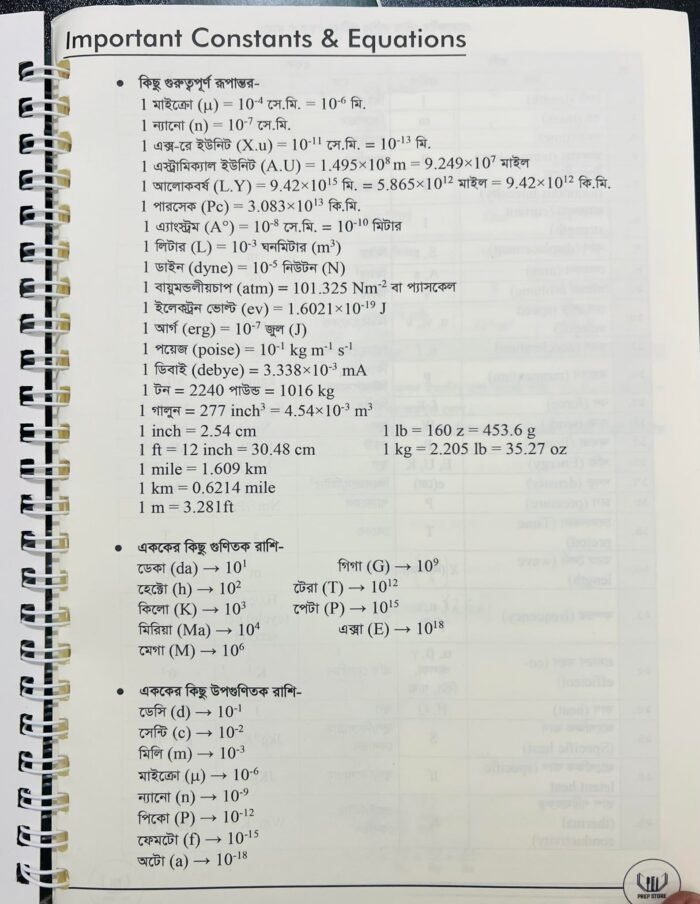 Important Constants & Equations
• কিছু গুরুত্বপূর্ণ রূপান্তর-
1 মাইক্রো (μ) = 10⁻⁴ সে.মি. = 10⁻⁶ মি.
1 ন্যানো (n) = 10⁻⁷ সে.মি.
1 এক্স-রে ইউনিট (X.u) = 10⁻¹¹ সে.মি. = 10⁻¹³ মি.
1 এস্ট্রোমিক্যাল ইউনিট (A.U) = 1.495×10⁸ m = 9.249×10⁷ মাইল
1 আলোকবর্ষ (L.Y) = 9.42×10¹⁵ মি. = 5.865×10¹² মাইল = 9.42×10¹² কি.মি.
1 পারসেক (Pc) = 3.083×10¹³ কি.মি.
1 এ্যাংস্ট্রম (A°) = 10⁻⁸ সে.মি. = 10⁻¹⁰ মিটার
1 লিটার (L) = 10⁻³ ঘনমিটার (m³)
1 ডাইন (dyne) = 10⁻⁵ নিউটন (N)
1 বায়ুমন্ডলীয়চাপ (atm) = 101.325 Nm⁻² বা প্যাসকেল
1 ইলেকট্রন ভোল্ট (ev) = 1.6021×10⁻¹⁹ J
1 আর্গ (erg) = 10⁻⁷ জুল (J)
1 পয়েজ (poise) = 10⁻¹ kg m⁻¹ s⁻¹
1 ডিবাই (debye) = 3.338×10⁻³ mA
1 টন = 2240 পাউন্ড = 1016 kg
1 গালুন = 277 inch³ = 4.54×10⁻³ m³
1 inch = 2.54 cm 1 lb = 160 z = 453.6 g
1 ft = 12 inch = 30.48 cm 1 kg = 2.205 lb = 35.27 oz
1 mile = 1.609 km
1 km = 0.6214 mile
1 m = 3.281ft
• এককের কিছু গুণিতক রাশি-
ডেকা (da) → 10¹ গিগা (G) → 10⁹
হেক্টো (h) → 10² টেরা (T) → 10¹²
কিলো (K) → 10³ পেটা (P) → 10¹⁵
মিরিয়া (Ma) → 10⁴ এক্সা (E) → 10¹⁸
মেগা (M) → 10⁶
• এককের কিছু উপগুণিতক রাশি-
ডেসি (d) → 10⁻¹
সেন্টি (c) → 10⁻²
মিলি (m) → 10⁻³
মাইক্রো (μ) → 10⁻⁶
ন্যানো (n) → 10⁻⁹
পিকো (P) → 10⁻¹²
ফেমটো (f) → 10⁻¹⁵
অটো (a) → 10⁻¹⁸
PREP STORE